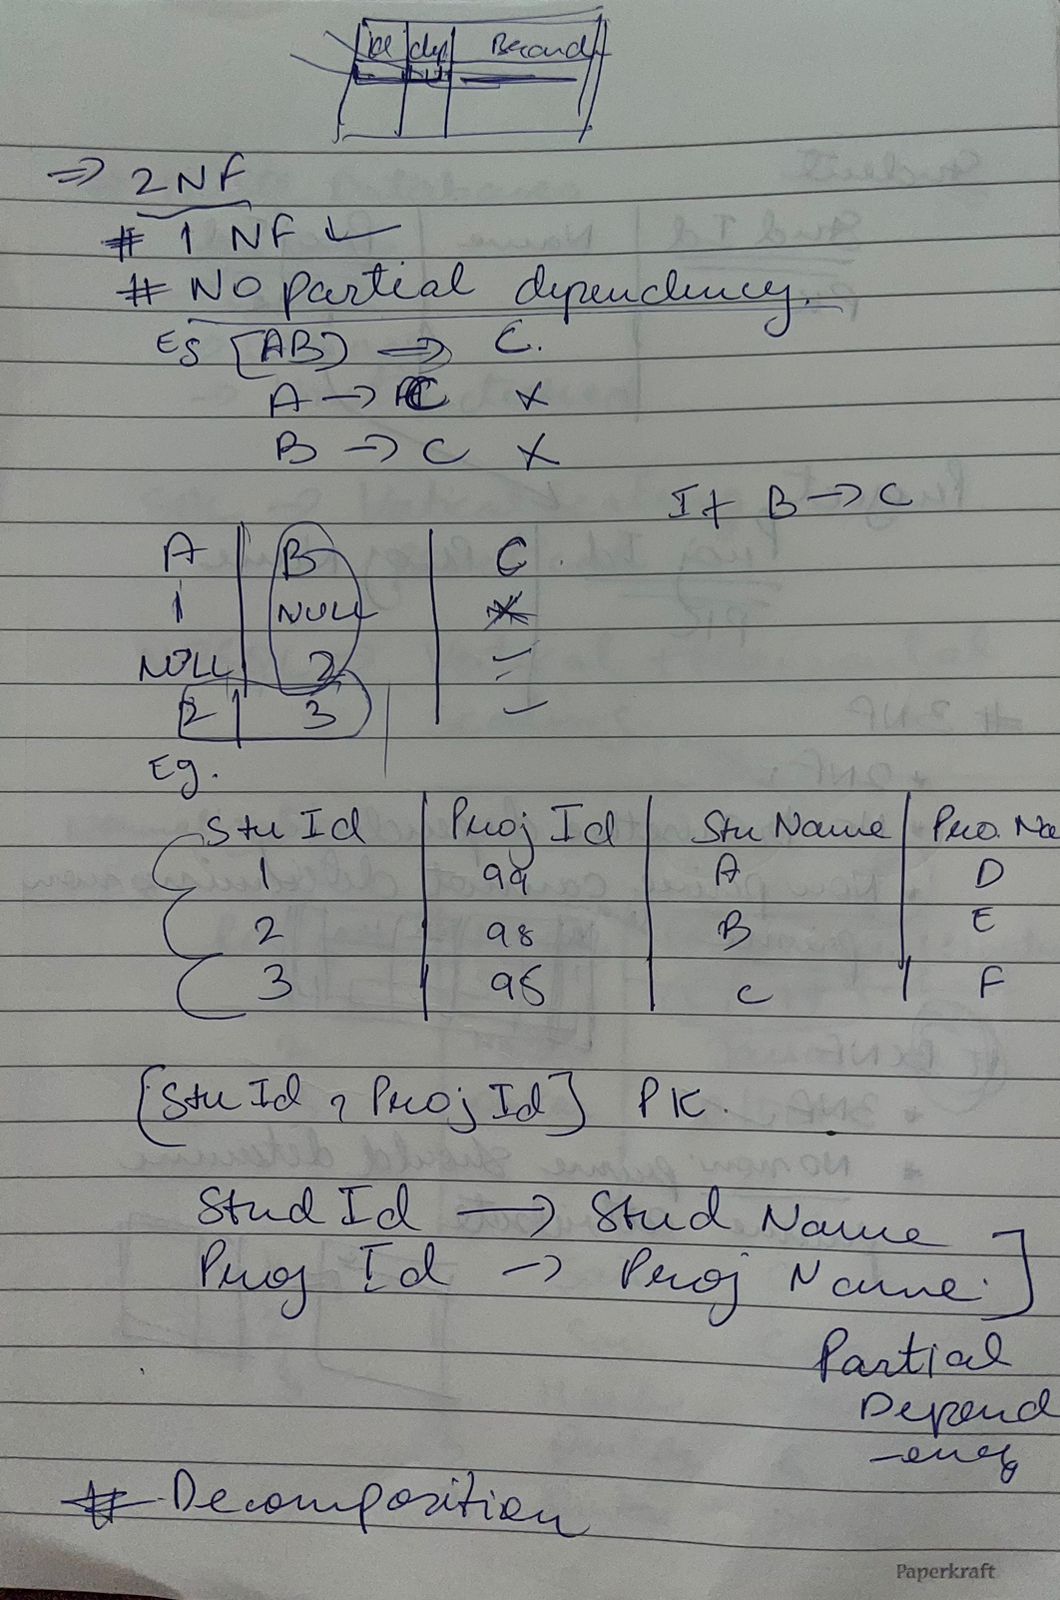 Id dep Brand
=> 2NF
# 1 NF ✓
# No partial dependency.
Eg [AB] => C.
A → C ×
B → C ×
If B → C
A | B | C
1 | NULL | ×
NULL | 2 | ✓
2 | 3 | ✓
Eg.
Stu Id | Proj Id | Stu Name | Pro. Na
1 | 99 | A | D
2 | 98 | B | E
3 | 95 | C | F
[Stu Id, Proj Id] PK.
Stud Id → Stud Name
Proj Id → Proj Name.
Partial
Depend
-ency
# Decomposition
Paperkraft